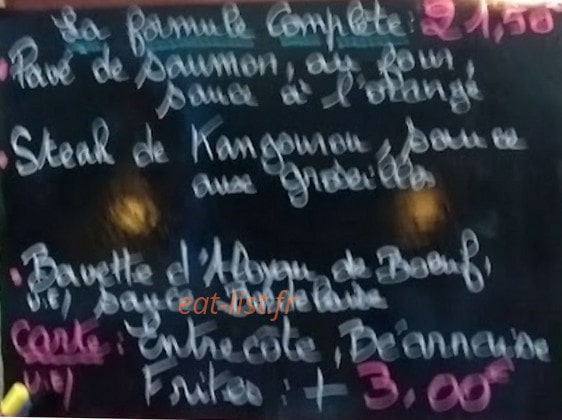 La formule Complète: 21,50
Pavé de Saumon, au four,
sauce à l'orange
Steak de Kangourou, sauce
aux groseilles
Bavette d'Aloyau de Boeuf,
V.E) sauce
eat-list.fr
Carte: Entrecôte, Béarnaise
V.E) Frites: + 3.00€